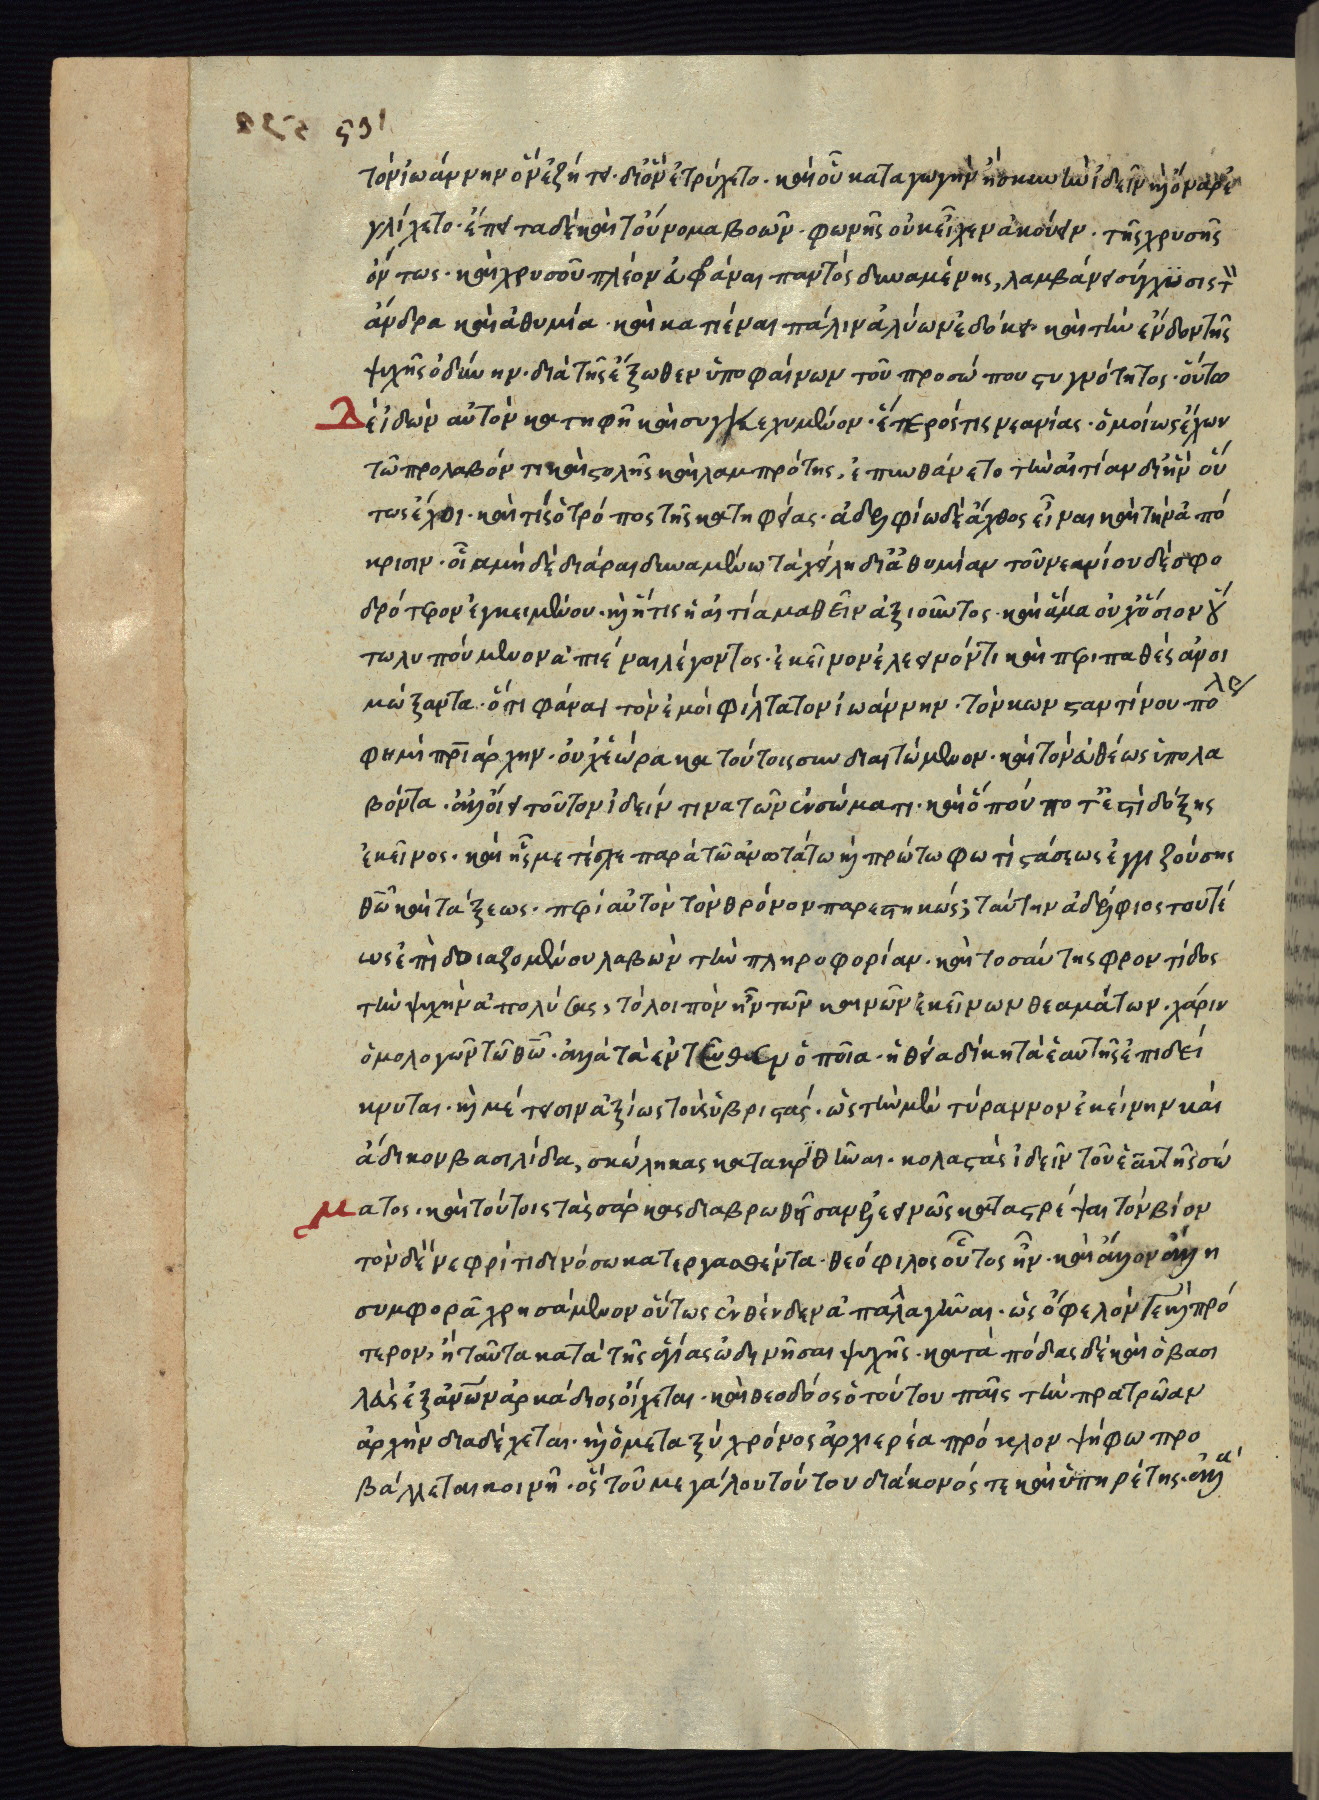 τὸν ἰωάννην ὃν ἐζήτει· δι᾽ ὃν ἐτρύχετο· καὶ οὗ κατὰ γωγὴν ἢ σκιὰν ἰδεῖν ἢ ὄναρ ἐ
γλίχετο· ἔπειτα δὲ καὶ τοὔνομα βοῶν· φωνῆς οὐκ εἶχεν ἀκούειν· τῆς χρυσῆς
ὄντως· καὶ χρυσοῦ πλέον εὐφράναι παντὸς δυναμένης, λαμβάνει σύγχυσις τὸν
ἄνδρα καὶ ἀθυμία· καὶ κατιέναι πάλιν ἀλύων ἐδόκει· καὶ τὴν ἔνδον τῆς
ψυχῆς ὀδύνην· διὰ τῆς ἔξωθεν ὑποφαίνων τοῦ προσώπου στυγνότητος· οὕτω
δὲ ἰδὼν αὐτὸν κατηφῆ καὶ συγκεχυμένον· ἕτερός τις νεανίας· ὁμοίως ἔχων
τῶ προλαβόντι καὶ στολῆς καὶ λαμπρότης, ἐπυνθάνετο τὴν αἰτίαν δι᾽ ἣν οὕ
τως ἔχοι· καὶ τίς ὁ τρόπος τῆς κατηφείας· ἀδελφίω δὲ ἄχθος εἶναι καὶ τὴν ἀπό
κρισιν· οἷα μὴ δὲ διάραι δυναμένω τὰ χείλη δι᾽ ἀθυμίαν τοῦ νεανίου δὲ σφο
δρότερον ἐγκειμένου· καὶ ἥτις ἡ αἰτία μαθεῖν ἀξιοῦντος· καὶ ἅμα οὐχ ὅσιον οὕ
τω λυπούμενον ἀπιέναι λέγοντος· ἐκεῖνον ἐλεεινόν τι καὶ περιπαθὲς ἀνοι
μώξαντα· ὅτι φάναι τὸν ἐμοὶ φίλτατον ἰωάννην· τὸν κωνσταντίνου πόλε
φημὶ πριάρχην· οὐχ ἑώρακα τούτοις συνδιαιτώμενον· καὶ τὸν εὐθέως ὑπολα
βόντα· ἀλλ᾽ οἴει τοῦτον ἰδεῖν τινα τῶν ἐν σώματι· καὶ ὅπου ποτ᾽ ἐστὶ δόξης
ἐκεῖνος· καὶ ἧς μετέσχε παρὰ τῶ ἀνωτάτω καὶ πρώτω φωτὶ στάσεως ἐγγιζούσης
θῶ καὶ τάξεως· περὶ αὐτὸν τὸν θρόνον παρεστηκώς; ταύτην ἀδέλφιος τουτέ
ως ἐπὶ δοιαζομένου λαβὼν τὴν πληροφορίαν· καὶ τοσαύτης φροντίδος
τὴν ψυχὴν ἀπολύσας, τὸ λοιπὸν ἦν τῶν καινῶν ἐκείνων θεαμάτων· χάριν
ὁμολογῶν τῶ θῶ· ἀλλὰ τὰ ἐντεῦθεν ὁποῖα· ἡ θεία δίκη τὰ ἑαυτῆς ἐπιδεί
κνυται· καὶ μέτεισιν ἀξίως τοὺς ὑβριστάς· ὡς τὴν μὲν τύραννον ἐκείνην καὶ
ἄδικον βασιλίδα, σκώληκας κατακριθῆναι· κολαστὰς ἰδεῖν τοῦ ἑαυτῆς σώ
ματος· καὶ τούτοις τὰς σάρκας διαβρωθεῖσαν ἐλεεινῶς καταστρέψαι τὸν βίον
τὸν δὲ νεφρίτιδι νόσω κατεργασθέντα· θεόφιλος οὗτος ἦν· καὶ ἄλλον ἄλλη
συμφορᾶ χρησάμενον οὕτως ἐνθένδεν ἀπαλλαγῆναι· ὡς ὄφελόν γε καὶ πρό
τερον, ἢ ταῦτα κατὰ τῆς ἁγίας ὠδινῆσαι ψυχῆς· κατὰ πόδας δὲ καὶ ὁ βασι
λεὺς ἐξ ἀνων ἀρκάδιος οἴχεται· καὶ θεοδόσιος ὁ τούτου παῖς τὴν πρατρῶαν
ἀρχὴν διαδέχεται· καὶ ὁ μεταξὺ χρόνος ἀρχιερέα πρόκλον ψήφω προ
βάλλεται κοινῆ· ὃς τοῦ μεγάλου τούτου διάκονός τε καὶ ὑπηρέτης· ἀλλὰ